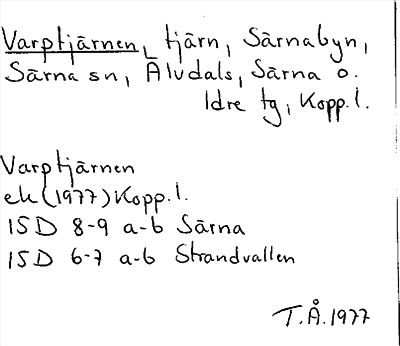 Varptjärnen, tjärn, Särnabyn,
Särna sn, Älvdals, Särna o.
Idre tg, Kopp.l.
Varptjärnen
ek (1977) Kopp.l.
15D 8-9 a-b Särna
15D 6-7 a-b Strandvallen
T.Å.1977